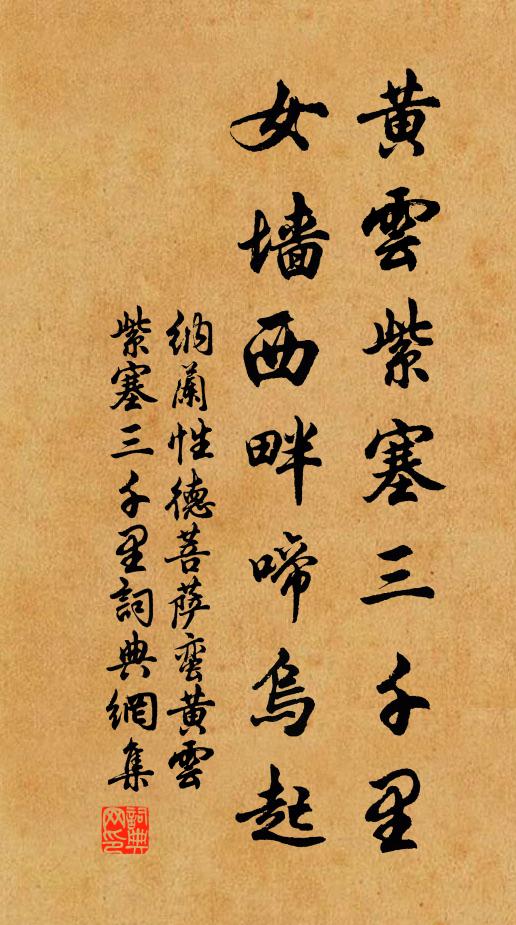 黄雲紫塞三千里
女墙西畔啼烏起
納蘭性德菩薩蛮黄雲
紫塞三千里詞典網集
詞典
网印